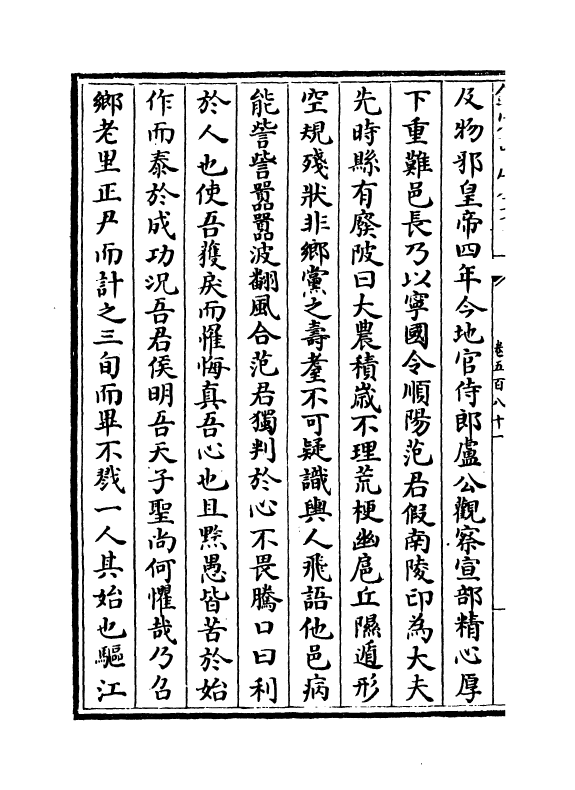 卷五百八十一
及物邪皇帝四年今地官侍郎盧公觀察宣部精心厚
下重難邑長乃以寧國令順陽范君假南陵印為大夫
先時縣有廢陂曰大農積嵗不理荒梗幽扈丘隰遁形
空規殘狀非鄉黨之壽耋不可疑識輿人飛語他邑病
能訾訾嚣嚣波翻風合范君獨判於心不畏騰口曰利
於人也使吾獲戾而惟悔真吾心也且黙愚皆苦於始
作而泰於成功况吾君侯明吾天子聖尚何懼哉乃召
鄉老里正尹而計之三旬而畢不戮一人其始也驅江